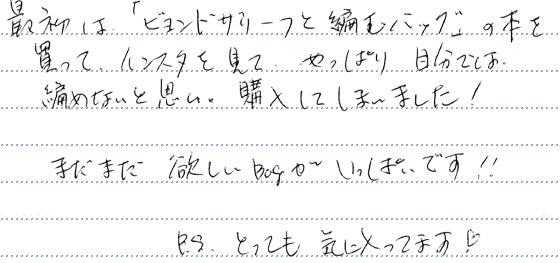 最初は、「ビヨンドザリーフと編むバッグ」の本を
買って、インスタを見て、やっぱり自分では
編めないと思い。購入してしまいました!
まだまだ 欲しいBagが いっぱいです!!
P.S. とっても 気に入ってます♡